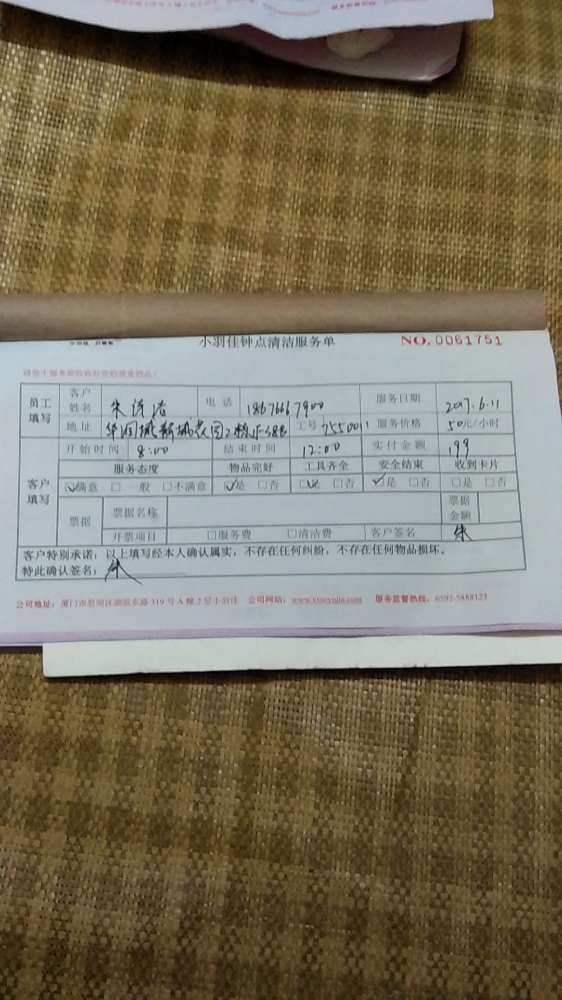 小羽佳钟点清洁服务单
NO.0061751
员工填写 客户姓名 朱 电话 服务日期 2017.6.11
地址 工号 7550011 服务价格 50元/小时
客户填写 开始时间 8:00 结束时间 12:00 实付金额 199
服务态度 物品完好 工具齐全 安全结束 收到卡片
☑满意 □一般 □不满意 ☑是 □否 ☑是 □否 ☑是 □否 □是 □否
票据 票据名称 票据金额
开票项目 □服务费 □清洁费 客户签名 朱
客户特别承诺:以上填写经本人确认属实,不存在任何纠纷,不存在任何物品损坏。
特此确认签名: 朱
公司地址: 厦门市思明区 319号A幢2层 公司网站: 服务监督热线: 0592-5888123